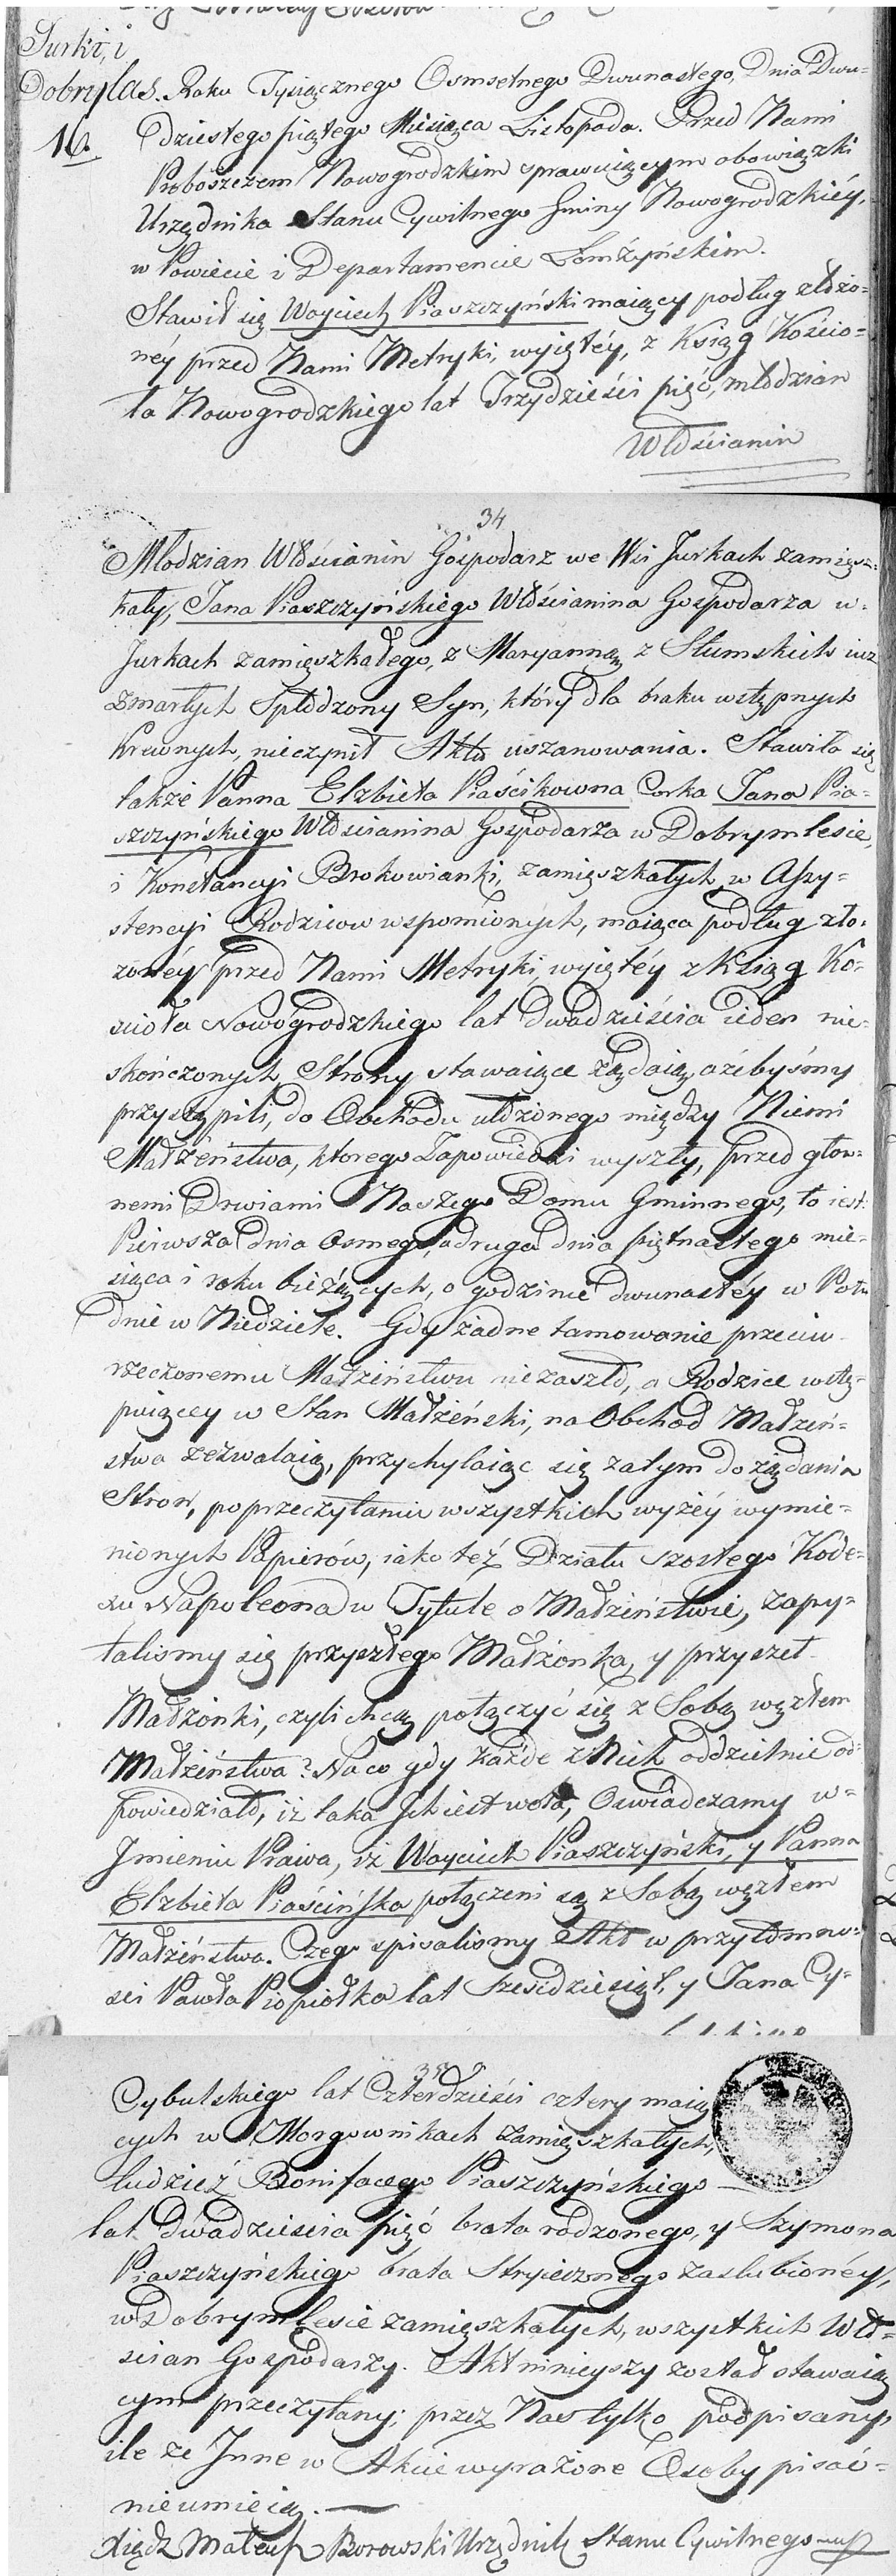 Jurki, i
Dobrylas.
16.
Roku Tysiącznego Osmsetnego Dwunastego, Dnia Dwu-
dziestego piątego Miesiąca Listopada. Przed Nami
Proboszczem Nowogrodzkim sprawuiącym obowiązki
Urzędnika Stanu Cywilnego Gminy Nowogrodzkiéy,
w Powiecie i Departamencie Łomżyńskim.
Stawił się Woyciech Piaszczyński maiący podług złożo-
néy przed Nami Metryki, wyiętéy, z Ksiąg Kościo-
ła Nowogrodzkiego lat Trzydzieści pięć, młodzian
Włościanin
34
Młodzian Włościanin Gospodarz we Wsi Jurkach zamięsz-
kały, Jana Piaszczyńskiego Włościanina Gospodarza w-
Jurkach zamięszkałego, z Maryanną z Słumskich iuz
zmarłych Spłodzony Syn, który dla braku wstępnych
Krewnych, nieczynił Aktu uszanowania. Stawiła się
także Panna Elzbieta Piaścikowna Corka Jana Pia-
szczyńskiego Włościanina Gospodarza w Dobrymlesie,
i Konstancyi Brokowianki, zamięszkałych, w Assy-
stencyi Rodzicow wspomionych, maiąca podług zło-
zonéy przed Nami Metryki, wyiętéy z Ksiąg Ko-
scioła Nowogrodzkiego lat Dwadzieścia ieden nie-
skończonych. Strony stawaiące ządaią, ażebyśmy
przystąpili, do Obchodu ułożonego między Niemi
Małżeństwa, ktorego Zapowiedzi wyszły, przed głow-
nemi Drwiami Naszego Domu Gminnego, to iest:
Pierwsza dnia Osmego, a druga dnia piętnastego mie-
siąca i roku bieżących, o godzinie dwunastéy w Połu-
dnie w Niedziele. Gdy żadne tamowanie przeciw
rzeczonemu Małżeństwu niezaszło, a Rodzice wstę-
puiącey w Stan Małżeński, na Obchod Małżeń-
stwa zezwalaią, przychylaiąc się zatym do ządania
Stron, po przeczytaniu wszystkich wyżéy wymie-
nionych Papierów, iako też Działu szostego Kode-
xu Napoleona w Tytule o Małżeństwie, zapy-
talismy się przyszłego Małżonka, y przyszeł
Małżonki, czyli chcą połączyć się z Sobą węzłem
Małżeństwa? Na co gdy każde z Nich oddzielnie od-
powiedziało, iż taka Ich iest wola, Oswiadczamy w-
Jmieniu Prawa, iż Woyciech Piaszczyński, y Panna
Elzbieta Piaścińska połączeni są z Sobą węzłem
Małżeństwa. Czego spisalismy Akt w przytomno-
sci Pawła Piopiołka lat Szescdziesiąt, y Jana Cy-
35
Cybulskiego lat Czterdzieści cztery maią
cych w Morgownikach zamięszkałych,
tudzież Bonifacego Piaszczyńskiego
lat Dwadziescia pięć brata rodzonego, y Szymona
Piaszczyńskiego brata Stryiecznego zaslubionéy,
w Dobrymlesie zamięszkałych, wszystkich Wło-
scian Gospodarzy. Akt ninieyszy został stawaią
cym przeczytany; przez Nas tylko podpisany,
ile ze Jnne w Akcie wyrażone Osoby pisać-
nieumieią.
Xiądz Mateusz Borowski Urzędnik Stanu Cywilnego